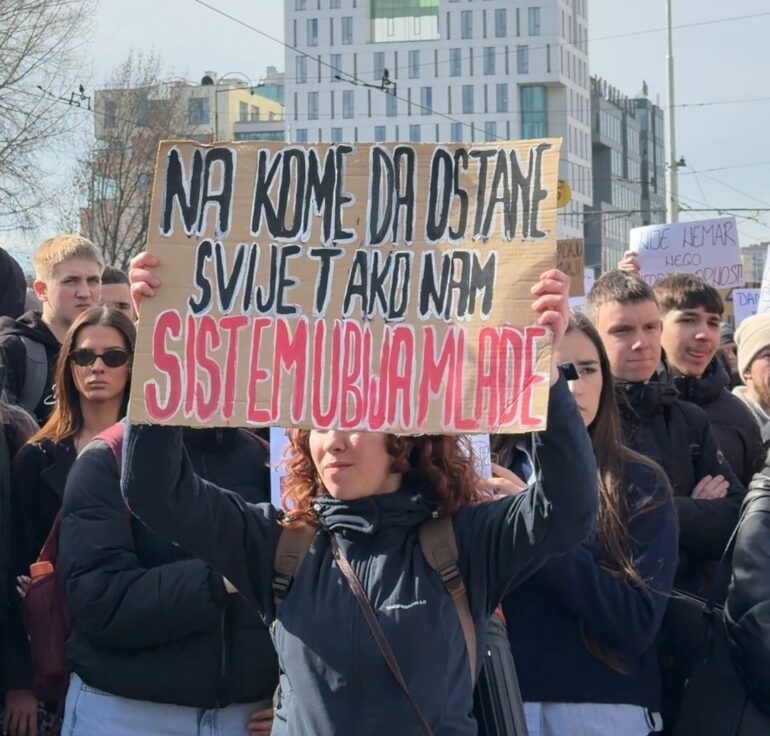 NA KOME DA OSTANE
SVIJET AKO NAM
SISTEM UBIJA MLADE
NIJE NEMAR
NEGO